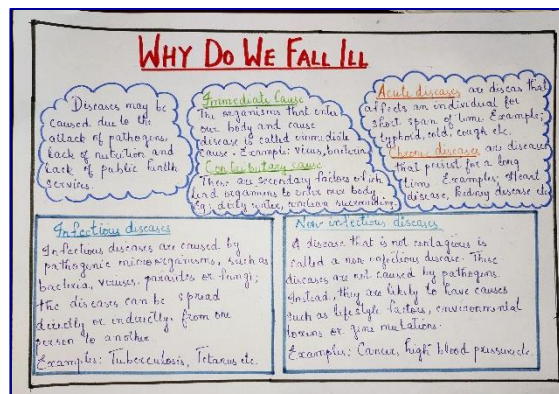 WHY DO WE FALL ILL
Diseases may be
caused due to the
attack of pathogens,
lack of nutrition and
lack of public health
services.
Immediate Cause
The organisms that enter
our body and cause
disease is called immediate
cause. Example: virus, bacteria
Contributary cause
These are secondary factors which
lead organisms to enter our body
Eg; dirty water, unclean surrounding.
Acute diseases are diseas that
affects an individual for
short span of time. Example;
typhoid, cold, cough etc.
Chronic diseases are diseases
that persist for a long
time. Examples; Heart
disease, kidney disease etc
Infectious diseases
Infectious diseases are caused by
pathogenic microorganisms, such as
bacteria, viruses, parasites or fungi;
the diseases can be spread
directly or indirectly, from one
person to another.
Examples: Tuberculosis, Tetanus etc.
Non-infectious diseases
A disease that is not contagious is
called a non infectious disease. These
diseases are not caused by pathogens.
Instead, they are likely to have causes
such as lifestyle factors, environmental
toxins or gene mutations.
Examples; Cancer, high blood pressure etc.